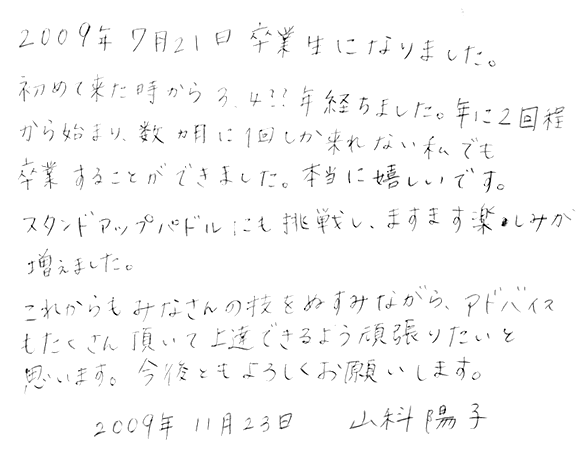 2009年7月21日 卒業生になりました。
初めて来た時から3.4??年経ちました。年に2回程
から始まり、数ヵ月に1回しか来れない私でも
卒業することができました。本当に嬉しいです。
スタンドアップパドルにも挑戦し、ますます楽しみが
増えました。
これからもみなさんの技をぬすみながら、アドバイス
もたくさん頂いて上達できるよう頑張りたいと
思います。今後ともよろしくお願いします。
2009年 11月23日 山科陽子